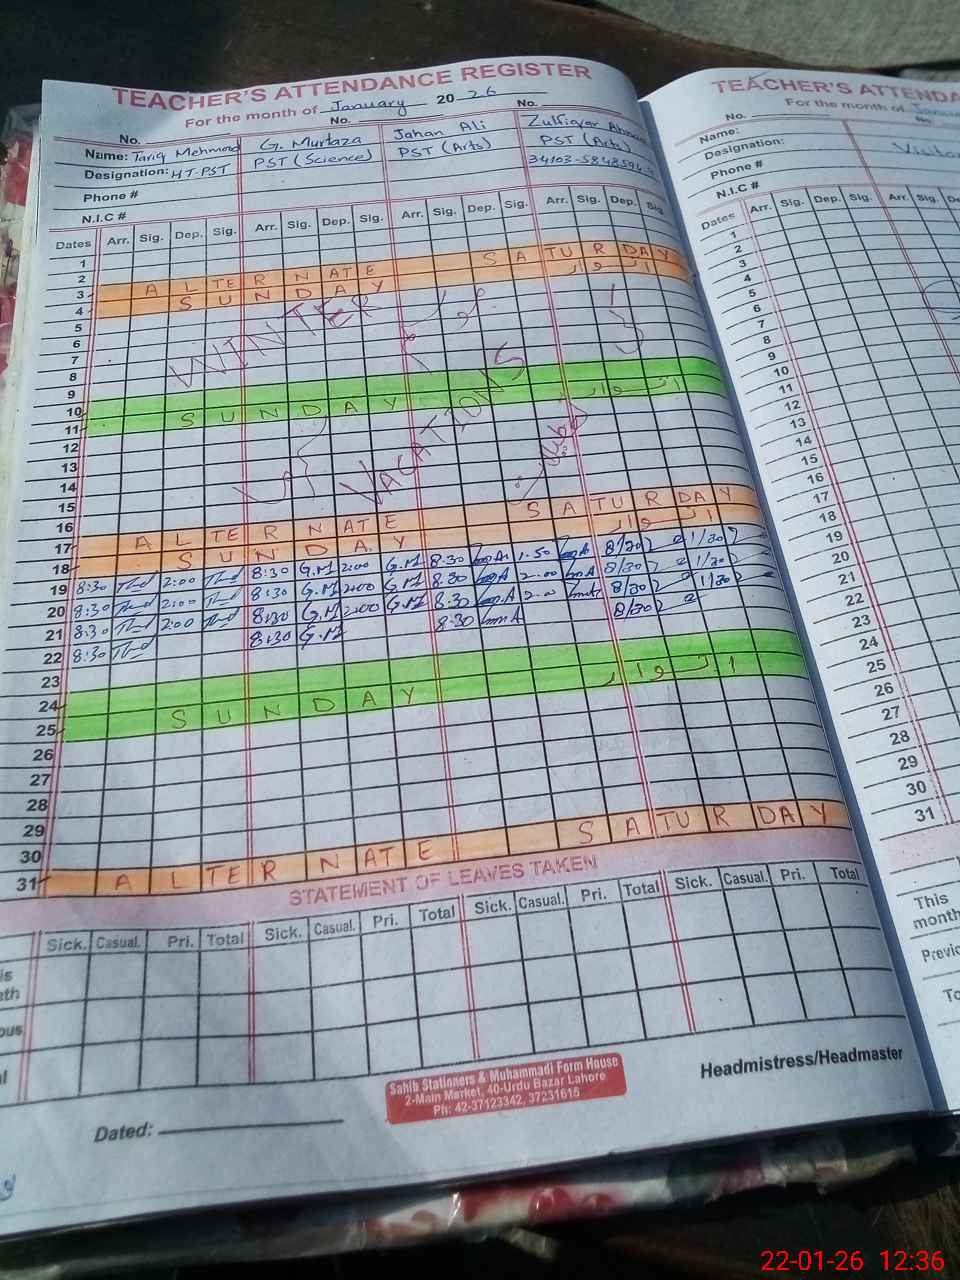 TEACHER'S ATTENDANCE REGISTER
For the month of January 2026
No. No. No.
Name: Tariq Mehmood G. Murtaza Jahan Ali Zulfiqar
Designation: HT-PST PST (Science) PST (Arts) PST (Arts)
Phone #
N.I.C #
Dates Arr. Sig. Dep. Sig. Arr. Sig. Dep. Sig. Arr. Sig. Dep. Sig. Arr. Sig. Dep. Sig.
1
2
3 ALTERNATE SATURDAY
4 SUNDAY اتوار
5
6
7
8
9
10
11 SUNDAY اتوار
WINTER
VACATIONS
12
13
14
15
16
17 ALTERNATE SATURDAY
18 SUNDAY اتوار
19 8:30 2:00 8:30 G.M 2:00 G.M 8:30 1.50 8/30 1/30
20 8:30 2:00 8:30 G.M 2:00 G.M 8:30 2.00 8/30 1/30
21 8:30 2:00 8:30 G.M 2:00 G.M 8:30 2.00 8/30 1/30
22 8:30 8:30 G.M 8:30 8/30
23
24
25 SUNDAY اتوار
26
27
28
29
30
31 ALTERNATE SATURDAY
STATEMENT OF LEAVES TAKEN
Sick. Casual. Pri. Total Sick. Casual. Pri. Total Sick. Casual. Pri. Total Sick. Casual. Pri. Total
Sahib Stationers & Muhammadi Form House
2-Main Market, 40-Urdu Bazar Lahore
Ph: 42-37123342, 37231615
Headmistress/Headmaster
Dated:
TEACHER'S ATTENDA
For the month of January
No. No.
Name:
Designation:
Phone #
N.I.C #
Dates Arr. Sig. Dep. Sig. Arr.
1
2
3
4
5
6
7
8
9
10
11
12
13
14
15
16
17
18
19
20
21
22
23
24
25
26
27
28
29
30
31
This
month
22-01-26 12:36